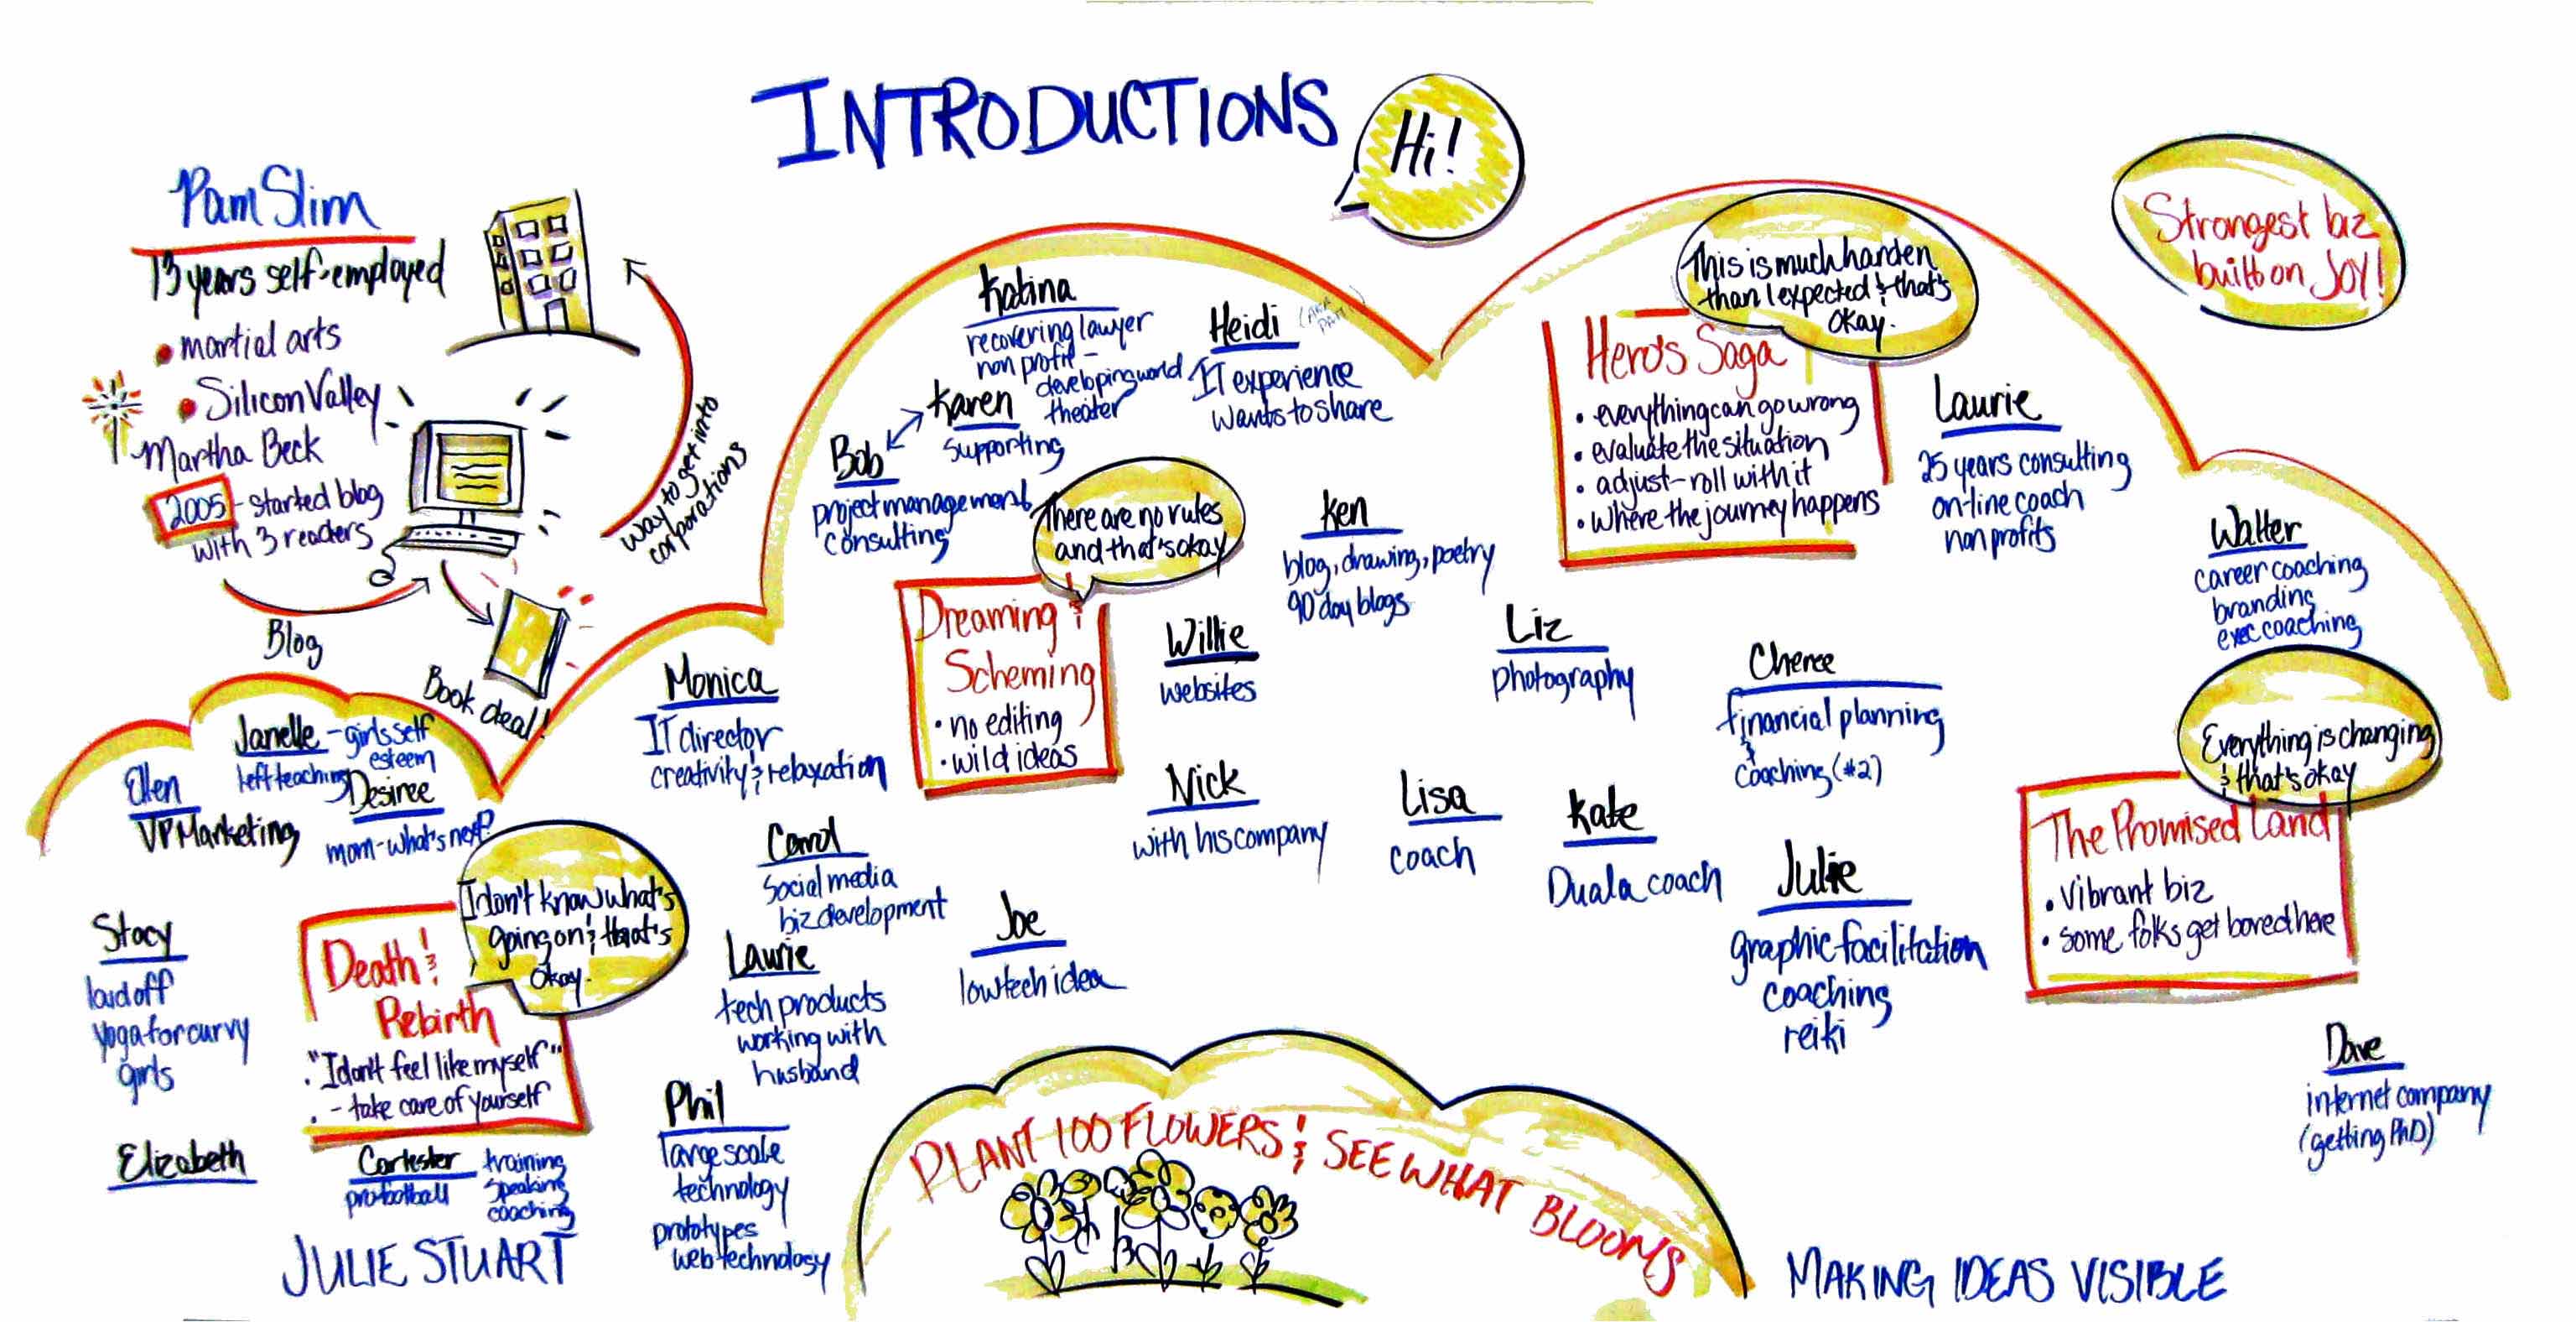 INTRODUCTIONS
Hi!
Pam Slim
13 years self-employed
• martial arts
• Silicon Valley
Martha Beck
2005 - started blog
with 3 readers
Blog
Book deal!
way to get into
corporations
Janelle - girls self
esteem
left teaching
Ellen
VP Marketing
Desiree
mom - what's next?
Stacy
laid off
yoga for curvy
girls
Elizabeth
I don't know what's
going on & that's
okay.
Death &
Rebirth
• "I don't feel like myself"
• - take care of yourself
pro football
training
speaking
coaching
JULIE STUART
Monica
IT director
creativity & relaxation
Carol
social media
biz development
Laurie
tech products
working with
husband
Phil
large scale
technology
prototypes
web technology
Joe
low tech idea
Katina
recovering lawyer
non profit -
developing world
theater
Heidi
IT experience
wants to share
Karen
supporting
Bob
project management
consulting
There are no rules
and that's okay
Dreaming &
Scheming
• no editing
• wild ideas
Ken
blog, drawing, poetry
90 day blogs
Willie
websites
Nick
with his company
Liz
photography
Lisa
coach
Kate
Duala coach
Cheree
financial planning
&
coaching (#2)
Julie
graphic facilitation
coaching
reiki
This is much harder
than I expected & that's
okay.
Hero's Saga
• everything can go wrong
• evaluate the situation
• adjust - roll with it
• where the journey happens
Laurie
25 years consulting
on-line coach
non profits
Strongest biz
built on Joy!
Walter
career coaching
branding
exec coaching
Everything is changing
& that's okay
The Promised Land
• vibrant biz
• some folks get bored here
Dave
internet company
(getting PhD)
PLANT 100 FLOWERS & SEE WHAT BLOOMS
MAKING IDEAS VISIBLE